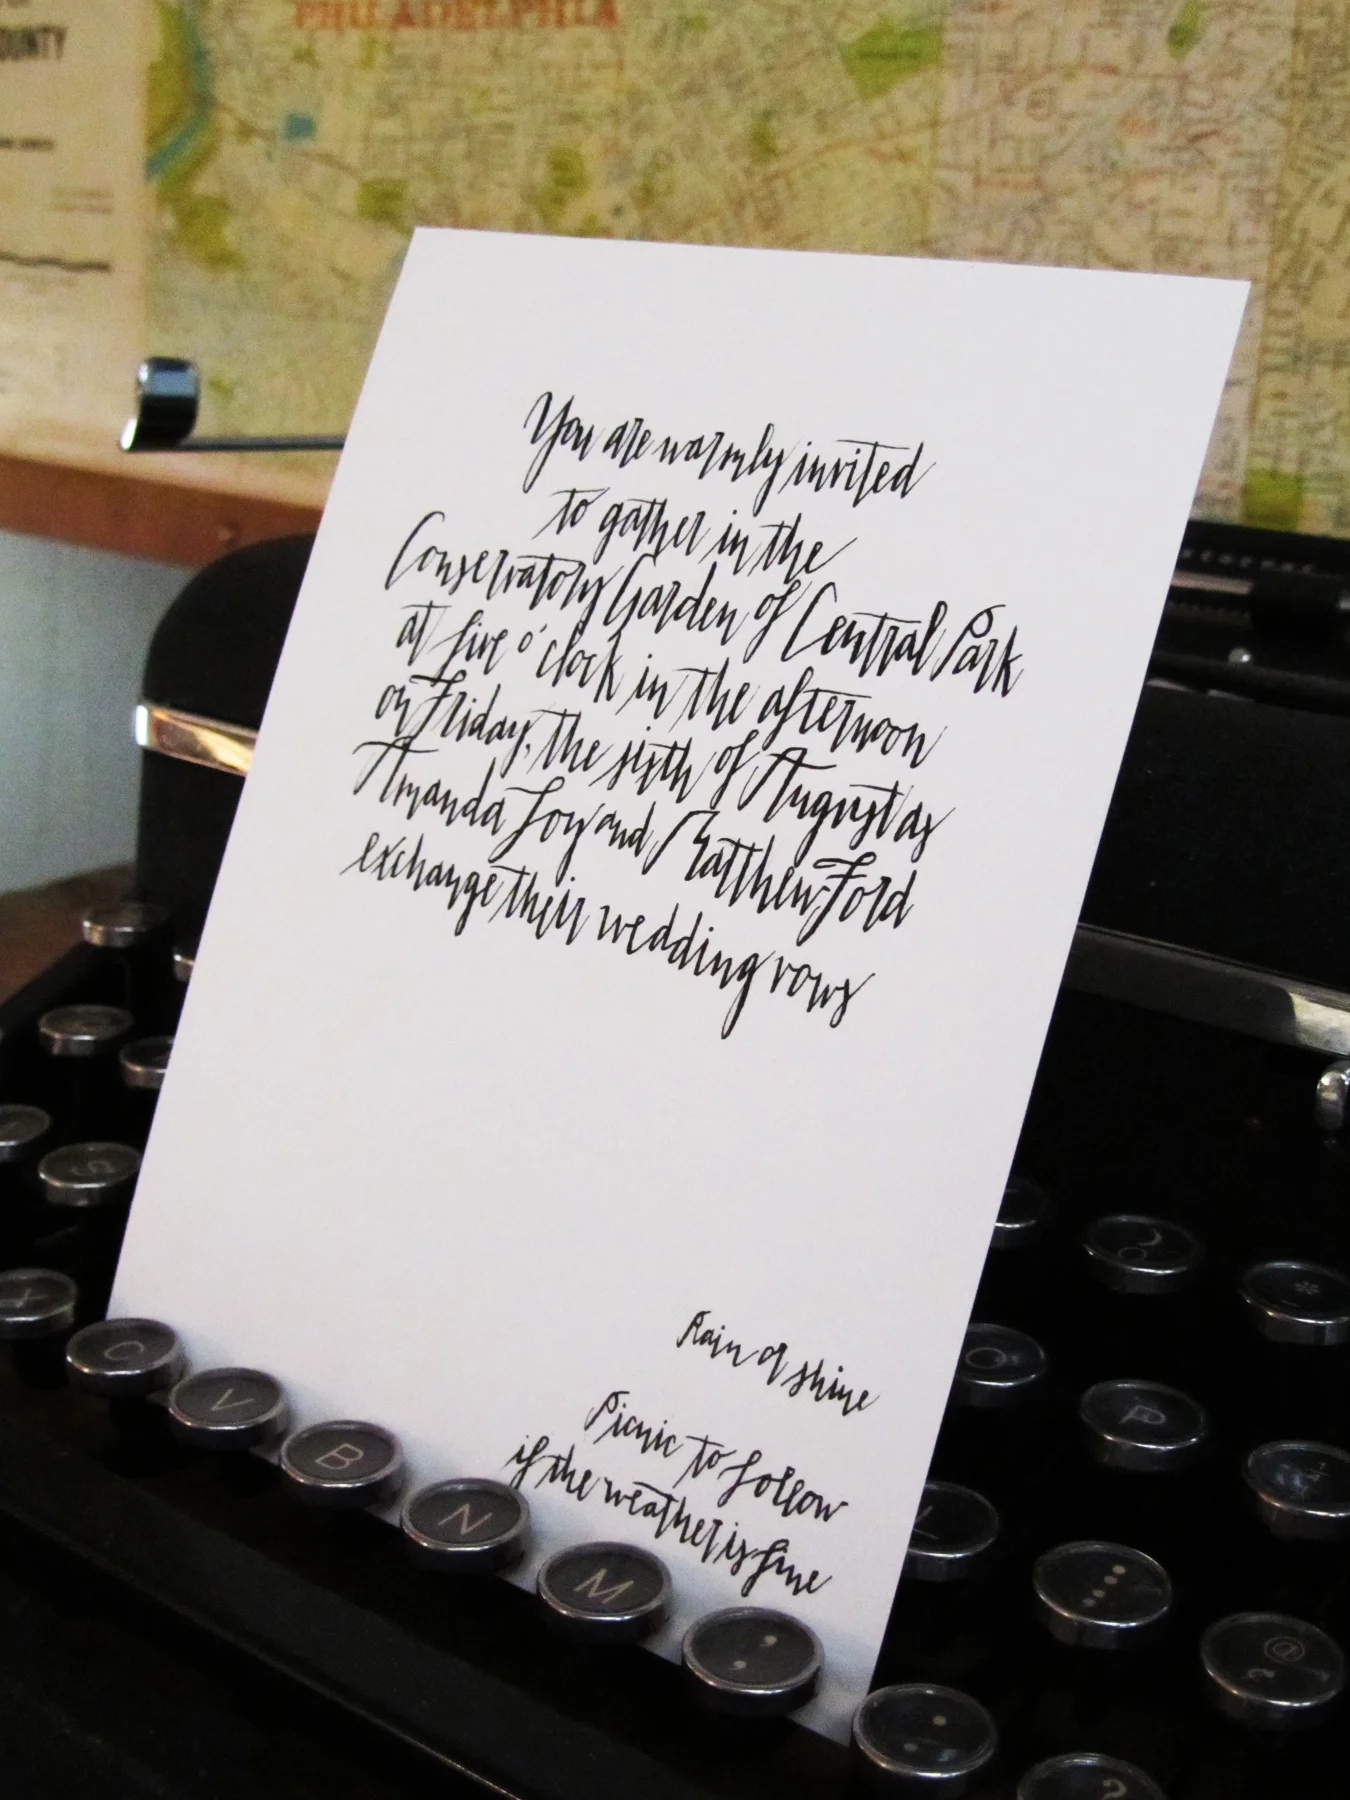 PHILADELPHIA
COUNTY
You are warmly invited
to gather in the
Conservatory Garden of Central Park
at five o'clock in the afternoon
on Friday, the sixth of August as
Amanda Joy and Matthew Ford
exchange their wedding vows
Rain or shine
Picnic to follow
if the weather is fine
C V B N M , ,
O P
L
S
@
?